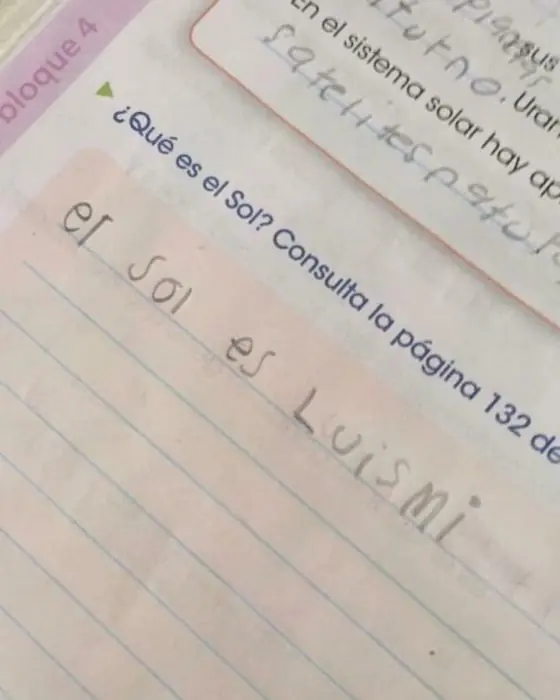 bloque 4
sus
Urar
En el sistema solar hay ap
satelites natu
¿Qué es el Sol? Consulta la página 132 de
el sol es LUiSMi